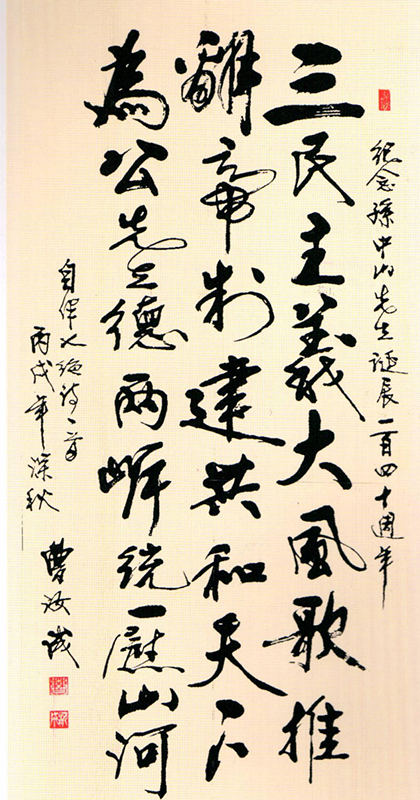 紀念孫中山先生诞辰一百四十週年
三民主義大風歌推
翻帝制建共和天下
為公先生德两岸统一慰山河
自作七绝诗一首
丙戌年深秋
曹汝